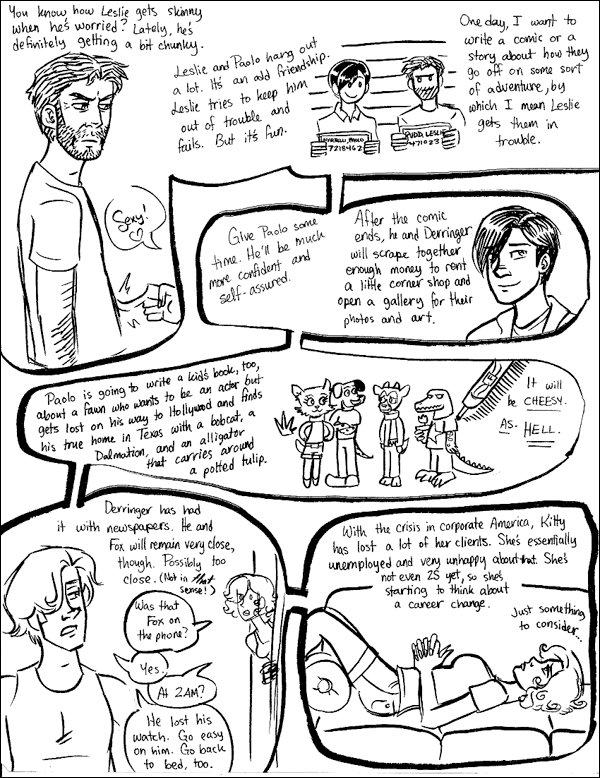 You know how Leslie gets skinny
when he's worried? Lately, he's
definitely getting a bit chunky.
Leslie and Paolo hang out
a lot. It's an odd friendship.
Leslie tries to keep him
out of trouble and
fails. But it's fun.
7218462
RUDD, LESLIE
471023
One day, I want to
write a comic or a
story about how they
go off on some sort
of adventure, by
which I mean Leslie
gets them in
trouble.
Sexy!
Give Paolo some
time. He'll be much
more confident and
self-assured.
After the comic
ends, he and Derringer
will scrape together
enough money to rent
a little corner shop and
open a gallery for their
photos and art.
Paolo is going to write a kid's book, too,
about a fawn who wants to be an actor but
gets lost on his way to Hollywood and finds
his true home in Texas with a bobcat, a
Dalmation, and an alligator
that carries around
a potted tulip.
It will
be CHEESY.
AS. HELL.
Derringer has had
it with newspapers. He and
Fox will remain very close,
though. Possibly too
close. (Not in that
sense!)
Was that
Fox on
the phone?
Yes.
At 2AM?
He lost his
watch. Go easy
on him. Go back
to bed, too.
With the crisis in corporate America, Kitty
has lost a lot of her clients. She's essentially
unemployed and very unhappy about that. She's
not even 25 yet, so she's
starting to think about
a career change.
Just something
to consider...